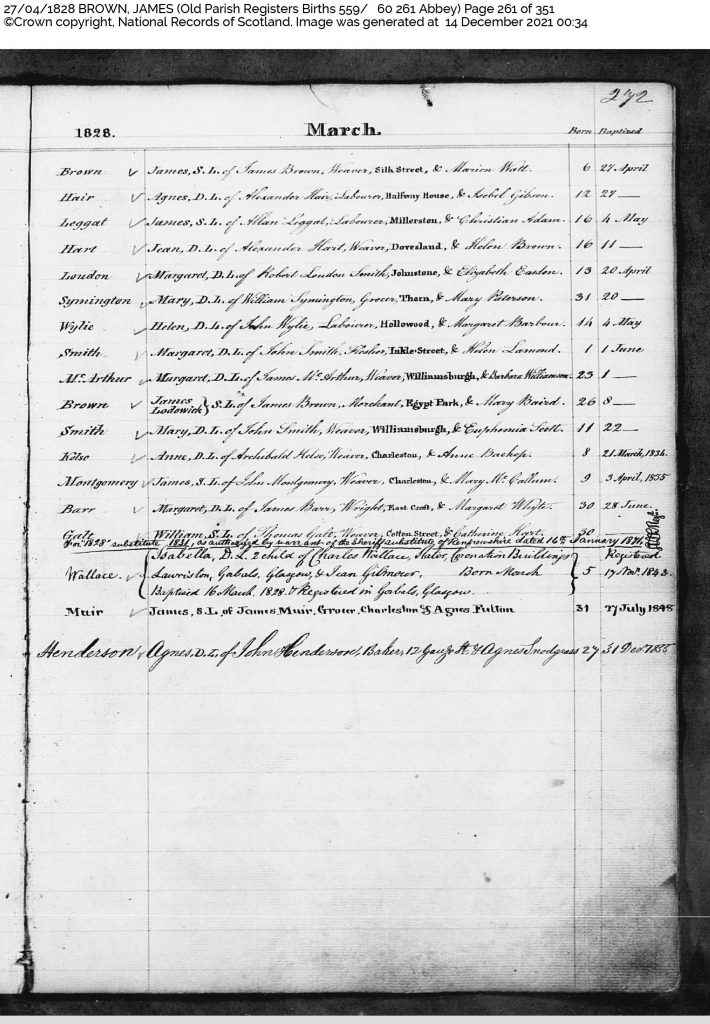 27/04/1828 BROWN, JAMES (Old Parish Registers Births 559/ 60 261 Abbey) Page 261 of 351
©Crown copyright, National Records of Scotland. Image was generated at 14 December 2021 00:34
272
1828. March. Born Baptized
Brown James, S. L. of James Brown, Weaver, Silk Street, & Marion Watt. 6 27 April
Hair Agnes, D. L. of Alexander Hair, Labourer, Halfway House, & Isobel Gibson. 12 27 —
Leggat James, S. L. of Allan Leggat, Labourer, Millerston, & Christian Adam. 16 4 May
Hart Jean, D. L. of Alexander Hart, Weaver, Dovesland, & Helen Brown. 16 11 —
Loudon Margaret, D. L. of Robert Loudon Smith, Johnstone, & Elizabeth Easton. 13 20 April
Symington Mary, D. L. of William Symington, Grocer, Thorn, & Mary Peterson. 31 20 —
Wylie Helen, D. L. of John Wylie, Labourer, Hollowood, & Margaret Barbour. 14 4 May
Smith Margaret, D. L. of John Smith, Flesher, Inkle Street, & Helen Lamond. 1 1 June
Mc. Arthur Margaret, D. L. of James Mc. Arthur, Weaver, Williamsburgh, & Barbara Williamson. 23 1 —
Brown James Lodowick } S. L. of James Brown, Merchant, Egypt Park, & Mary Baird. 26 8 —
Smith Mary, D. L. of John Smith, Weaver, Williamsburgh, & Euphemia Scott. 11 22 —
Kelso Anne, D. L. of Archibald Kelso, Weaver, Charleston, & Anne Bachop. 8 21 March, 1834.
Montgomery James, S. L. of John Montgomery, Weaver, Charleston, & Mary Mc. Callum. 9 3 April, 1835
Barr Margaret, D. L. of James Barr, Wright, East Croft, & Margaret Whyte. 30 28 June.
Galt William, S. L. of Thomas Galt, Weaver, Cotton Street, & Catherine Hart. 30
For "1828" substitute 1831, as authorised by warrant of the Sheriff substitute of Renfrewshire dated 16th January 1871,
Isabella, D. L. 2 child of Charles Wallace, Slater, Coronation Buildings Registered
Wallace. Lawriston, Gobals, Glasgow, & Jean Gilmour, Born March 5 17 Novr. 1843.
Baptised 16 March, 1828. & Registered in Gorbals, Glasgow.
Muir James, S. L. of James Muir, Grocer, Charleston & Agnes Fulton 31 27 July 1848
Henderson Agnes, D. L. of John Henderson, Baker, 12 Gauze St. & Agnes Snodgrass 27 31 Decr.